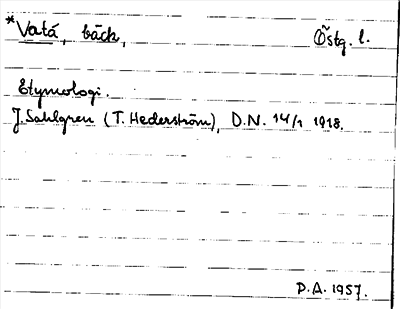 *Vatá, bäck, Östg. l.
Etymologi.
J. Sahlgren (T. Hederström), D.N. 14/1 1918.
P.A. 1957.